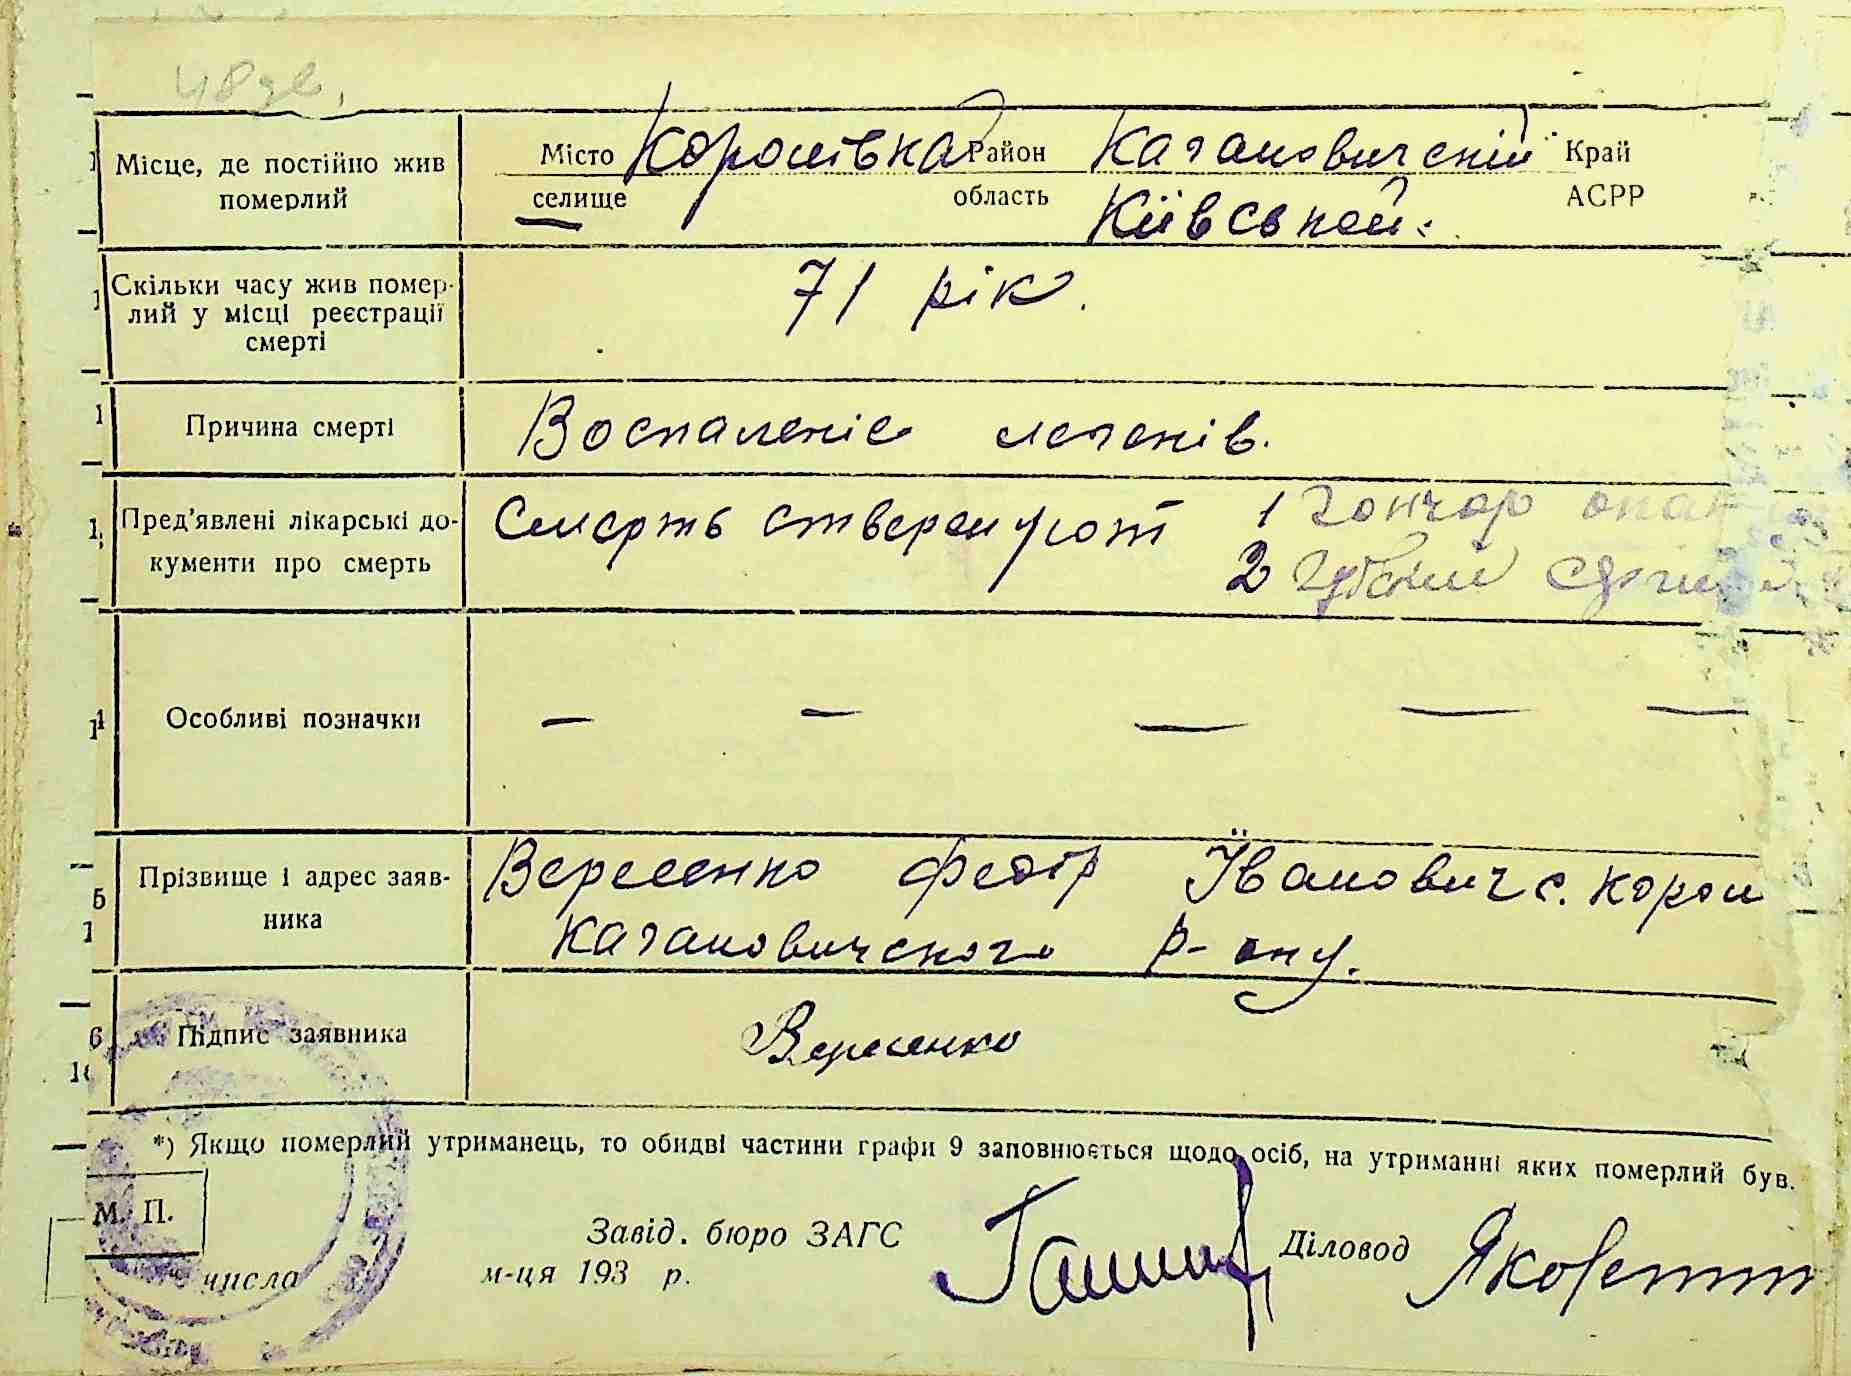 48
Місце, де постійно жив
померлий
Місто Королівка Район Кагановичский Край
селище область Київськой. АСРР
Скільки часу жив помер-
лий у місці реєстрації
смерті
71 рік.
Причина смерті
Воспаленіє легенів.
Пред'явлені лікарські до-
кументи про смерть
Смерть ствережуют 1 Гончар
2
Особливі позначки
— — — — —
Прізвище і адрес заяв-
ника
Вересенко Федір Іванович с. Корол
Кагановичского р-ону.
Підпис заявника
Вересенко
*) Якщо померлий утриманець, то обидві частини графи 9 заповнюється щодо осіб, на утриманні яких померлий був.
М. П.
Завід. бюро ЗАГС
Діловод
числа м-ця 193 р.